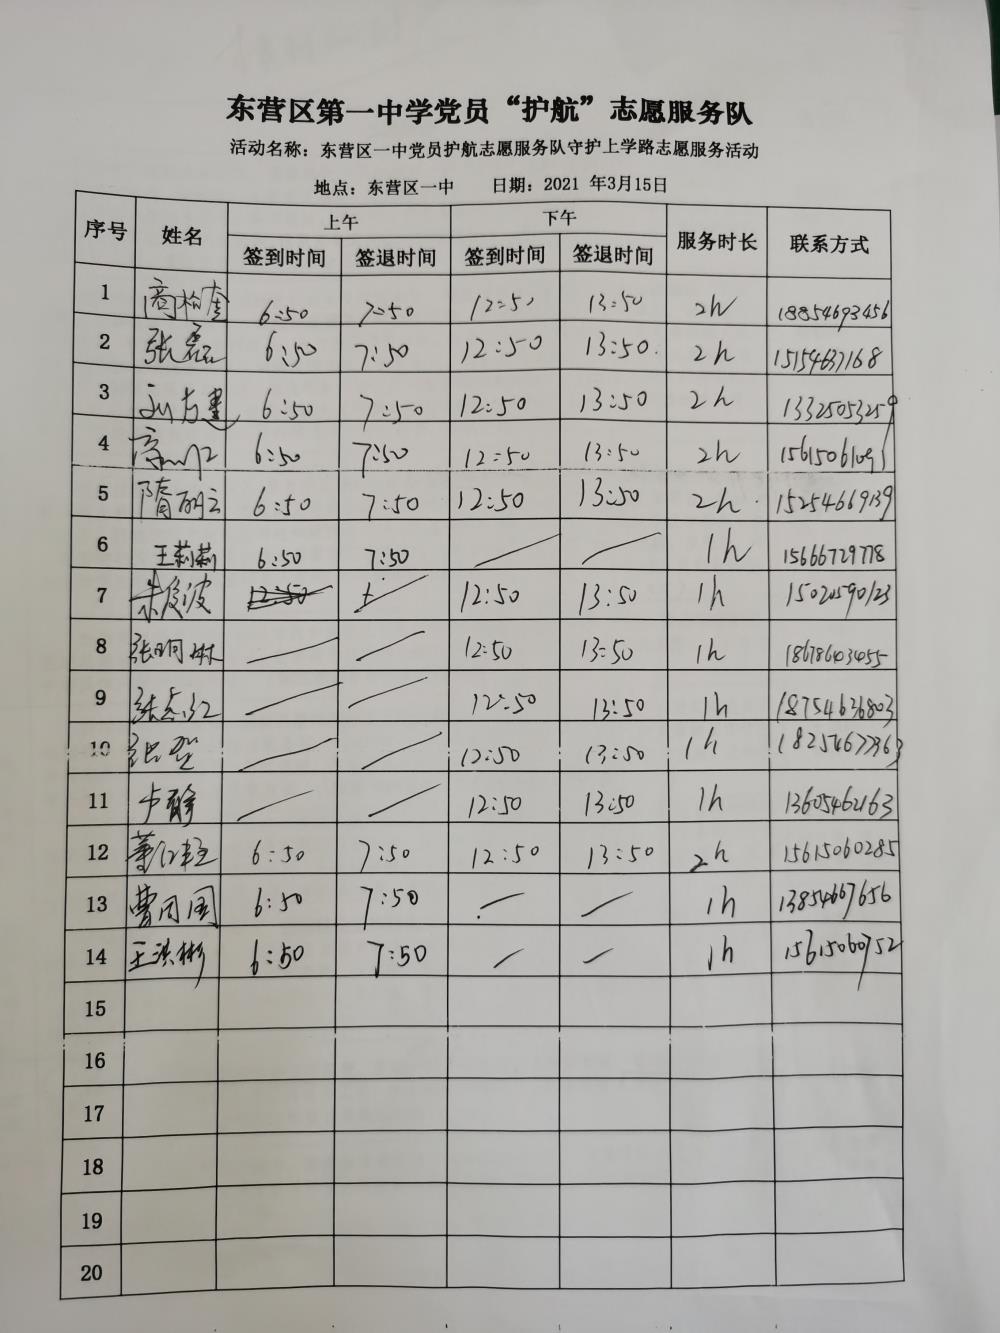 东营区第一中学党员“护航”志愿服务队
活动名称：东营区一中党员护航志愿服务队守护上学路志愿服务活动
地点：东营区一中 日期：2021 年3月15日
序号 姓名 上午 下午 服务时长 联系方式
签到时间 签退时间 签到时间 签退时间
1 6:50 7:50 12:50 13:50 2h 18854693456
2 张磊 6:50 7:50 12:50 13:50 2h 15154637168
3 6:50 7:50 12:50 13:50 2h 13325053259
4 6:50 7:50 12:50 13:50 2h 15615061091
5 隋丽云 6:50 7:50 12:50 13:50 2h 15254669139
6 王莉莉 6:50 7:50 1h 15666729778
7 朱俊波 12:50 13:50 1h 15020590123
8 12:50 13:50 1h 18678603055
9 12:50 13:50 1h 18754636803
10 12:50 13:50 1h
11 卢静 12:50 13:50 1h 13605462163
12 6:50 7:50 12:50 13:50 2h 15615060285
13 曹同国 6:50 7:50 1h 13854667656
14 王洪彬 6:50 7:50 1h 15615060752
15
16
17
18
19
20